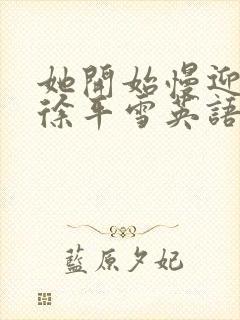 她開始慢迎
徐平雪英語
藍原夕妃